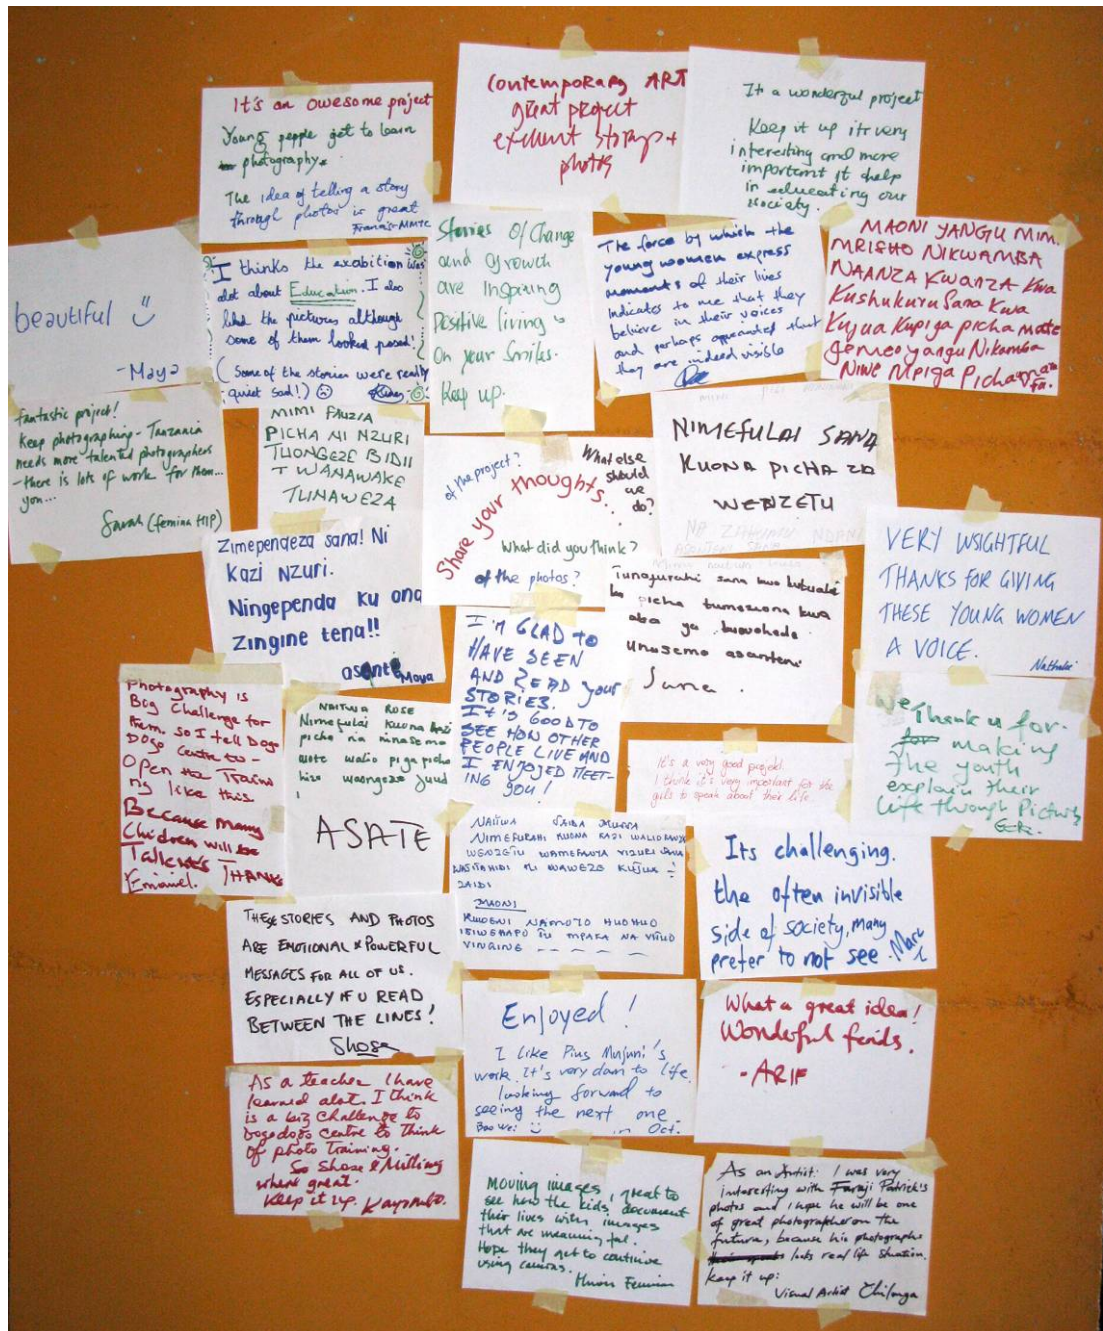 It's an owesome project
Young people get to learn
photography.
The idea of telling a story
through photos is great
Contemporary ART
great project
excllent storys +
photos
It a wonderful project
Keep it up its very
interesting and more
important it help
in educating our
society.
beautiful
-Maya
I thinks the exabition was
alot about Education. I also
liked the pictures although
some of them looked posed!
(Some of the stories were really
quiet sad!)
Stories Of Change
and Growth
are Inspiring
Positive living
On your Smiles.
Keep up.
The force by which the
young women express
moments of their lives
indicates to me that they
believe in their voices
and perhaps appeanded that
they are indeed visible
MAONI YANGU MIM.
MRISHO NIKWAMBA
NAANZA KWANZA Kwa
Kushukuru Sana Kwa
Kujua Kupiga picha mate
gemeo yangu Nikamba
Niwe Mpiga Picha
fantastic project!
Keep photographing - Tanzania
needs more talented photographers
- there is lots of work for them...
you...
Sarah (femina HIP)
MIMI FAUZIA
PICHA NI NZURI
TUONGEZE BIDII
WANAWAKE
TUNAWEZA
of the project?
What else
should
we
do?
Share your thoughts...
What did you think?
of the photos?
NIMEFULAI SANA
KUONA PICHA ZA
WENZETU
Zimependeza sana! Ni
Kazi Nzuri.
Ningependa ku ona
Zingine tena!!
asante Moya
Tunafurahi sana kwa
picha tumeziona kwa
Unasemo asanteni
Sana.
VERY INSIGHTFUL
THANKS FOR GIVING
THESE YOUNG WOMEN
A VOICE.
Nathalie
Photography is
Big Challenge for
them. so I tell Dogo
Dogo Centre to -
Open the Traini
ng like this
Because many
Children will be
Talents THANKS
Emanuel.
NAITWA ROSE
Nimefulai kuona kazi
picha nia ninasema
wote walio piga picha
hizo waongeze juud
I
ASATE
I'M GLAD TO
HAVE SEEN
AND READ your
STORIES.
It's GOOD TO
SEE HOW OTHER
PEOPLE LIVE AND
I ENJOYED MEET-
ING YOU!
It's a very good projekt.
I think it's very important for the
girls to speak about their life.
We Thank u for
for making
the youth
explain their
life through Pictures
NAITWA SAIDA MUSSA
NIMEFURAHI KUONA KAZI WALIOFANYA
WENZETU WAMEFANYA VIZURI SANA
WAJITAHIDI ILI WAWEZE KUJUA
ZAIDI
MAONI
KUWENI NAMOYO HUOHUO
ISIWEHAPO TU MPAKA NA VITUO
VINGINE
Its challenging.
the often invisible
side of society, many
prefer to not see.
THESE STORIES AND PHOTOS
ARE EMOTIONAL & POWERFUL
MESSAGES FOR ALL OF US.
ESPECIALLY IF U READ
BETWEEN THE LINES!
Shose
Enjoyed!
I like Pius Mujuni's
work. It's very down to life.
looking forward to
seeing the next one
Bao Wei in Oct.
What a great idea!
Wonderful fotos.
- ARIF
As a teacher I have
learned alot. I think
is a big challenge to
Dogodogo centre to think
of photo Training.
So Shose & Mitting
where great.
Keep it up. Kayombo.
Moving images, great to
see how the kids document
their lives with images
that are meaningful.
Hope they get to continue
using cameras.
As an Artist: I was very
interesting with Faraji Patrick's
photos and I hope he will be one
of great photographer on the
future, because his photographs
looks real life situation.
keep it up:
Visual Artist Chilonga